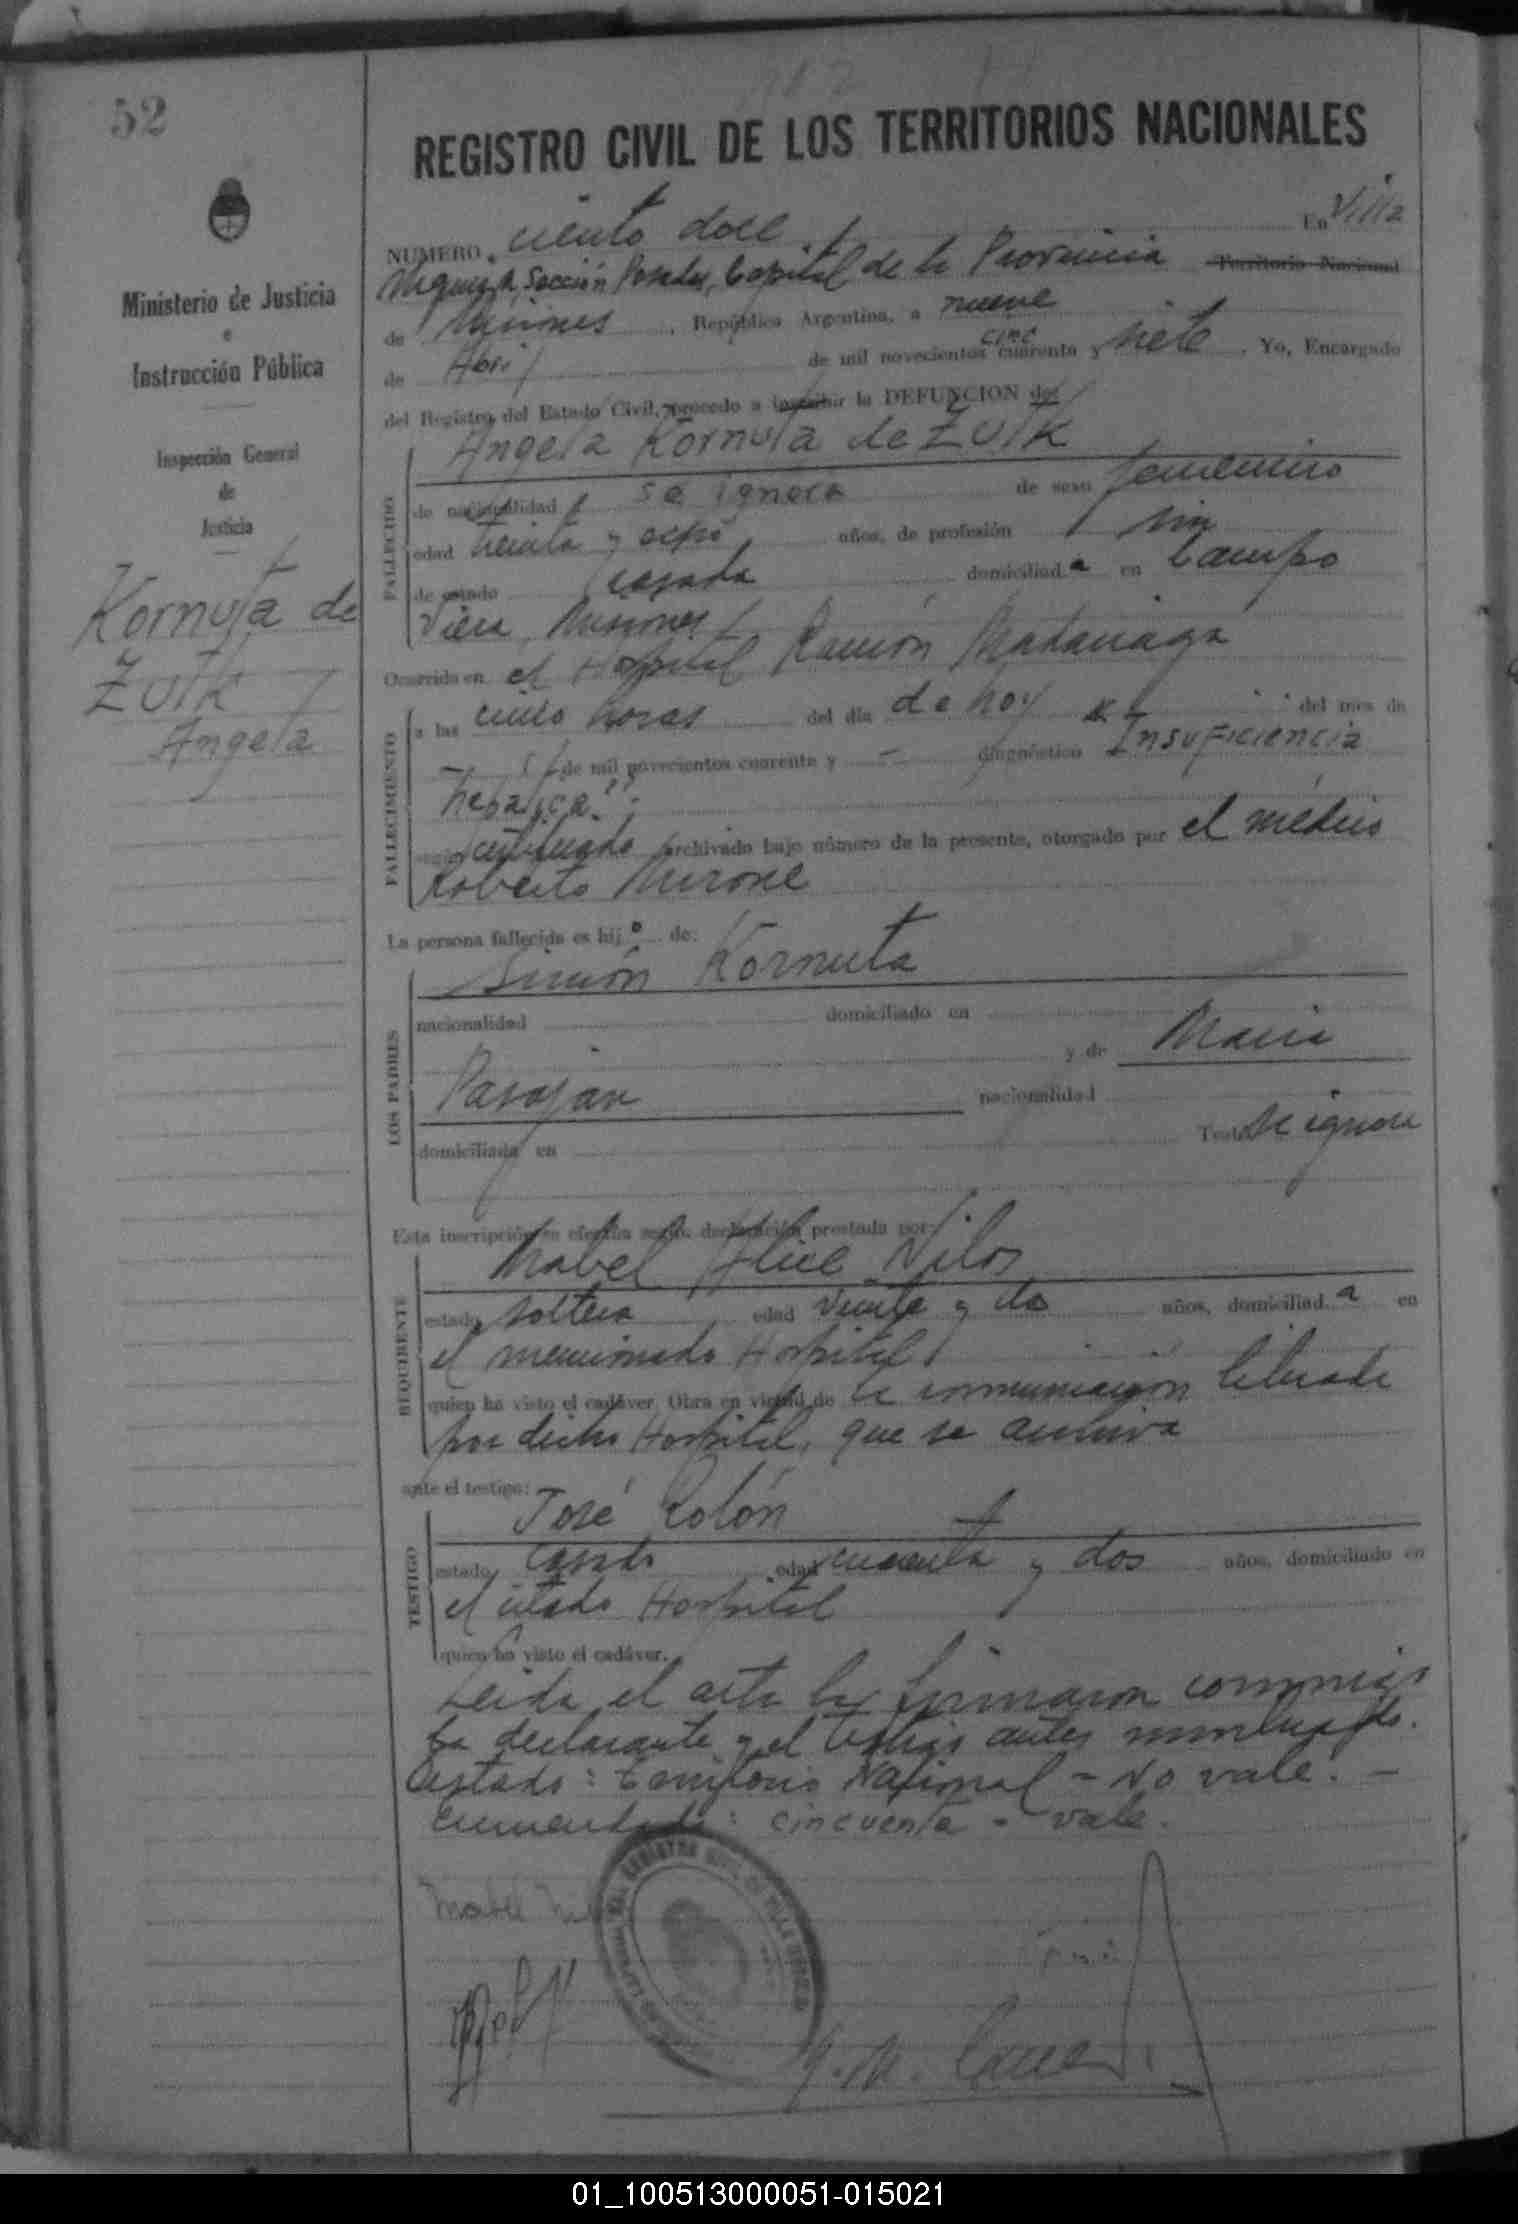 52
REGISTRO CIVIL DE LOS TERRITORIOS NACIONALES
Ministerio de Justicia
e
Instrucción Pública
Inspección General
de
Justicia
Kornuta de
Zutk
Angela
NUMERO ciento doce En Villa
Urquiza, Sección Posadas, Capital de la Provincia Territorio Nacional
de Misiones, República Argentina, a nueve
de Abril de mil novecientos cinc cuarenta y siete. Yo, Encargado
del Registro del Estado Civil, procedo a inscribir la DEFUNCION del
Angela Kornuta de Zutk
FALLECIDO
de nacionalidad se ignora de sexo femenino
edad treinta y ocho años, de profesión sin
de estado casada domiciliada en Campo
Viera, Misiones
Ocurrida en el Hospital Ramón Madariaga
FALLECIMIENTO
a las cinco horas del día de hoy del mes de
de mil novecientos cuarenta y — diagnóstico "Insuficiencia
hepática".
según certificado archivado bajo número de la presente, otorgado por el médico
Roberto Mirone
La persona fallecida es hijo de:
LOS PADRES
Simón Kornuta
nacionalidad domiciliado en
y de María
nacionalidad
domiciliada en se ignora
Esta inscripción se efectúa según declaración prestada por:
REQUIRENTE
Mabel Alice
estado soltera edad veinte y dos años, domiciliada en
el mencionado Hospital
quien ha visto el cadáver. Obra en virtud de la comunicación librada
por dicho Hospital, que se archiva
ante el testigo:
TESTIGO
José Rolón
estado casado edad cuarenta y dos años, domiciliado en
el citado Hospital
quien ha visto el cadáver.
Leida el acta la firmaron conmigo
la declarante y el testigo antes nombrado.
Testado: Territorio Nacional - No vale. -
Enmendado: cincuenta - vale.
Mabel
01_100513000051-015021